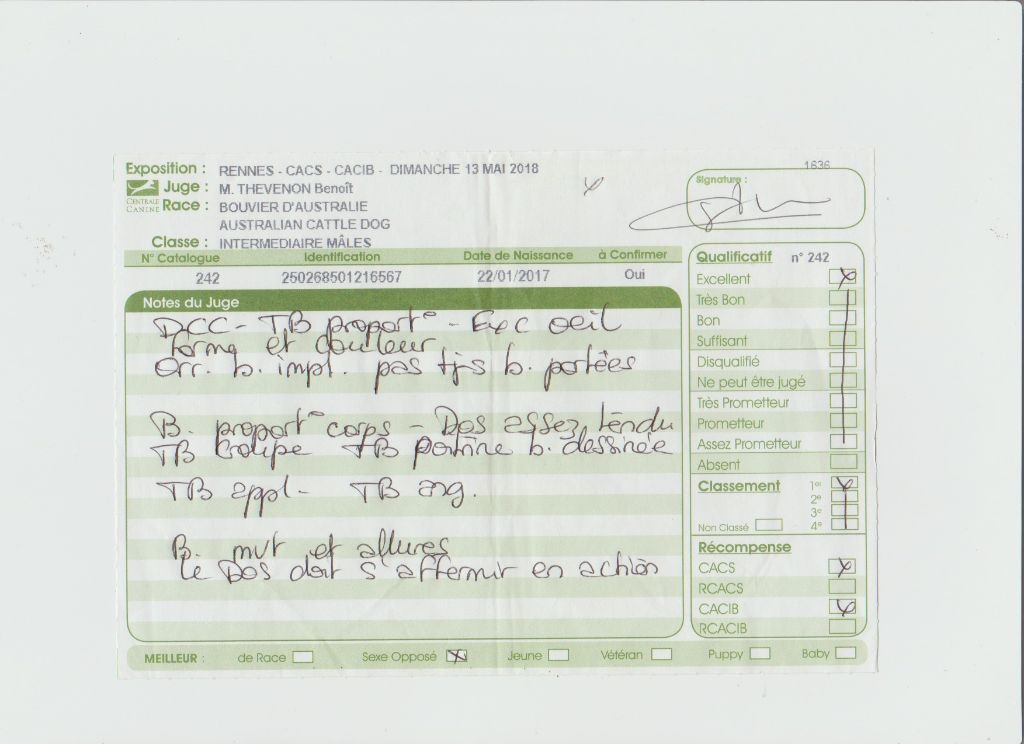 1636
Exposition : RENNES - CACS - CACIB - DIMANCHE 13 MAI 2018
Juge : M. THEVENON Benoît
CENTRALE CANINE
Race : BOUVIER D'AUSTRALIE
AUSTRALIAN CATTLE DOG
Classe : INTERMEDIAIRE MÂLES
Signature :
N° Catalogue Identification Date de Naissance à Confirmer
242 250268501216567 22/01/2017 Oui
Notes du Juge
DCC - TB proport° - Exc oeil
forme et couleur
Orr. b. impl. pas tjs b. portées
B. proport° corps - Dos assez tendu
TB Croupe TB poitrine b. dessinée
TB appl - TB ang.
B. mvt et allures
Le Dos doit s'affermir en action
Qualificatif n° 242
Excellent
Très Bon
Bon
Suffisant
Disqualifié
Ne peut être jugé
Très Prometteur
Prometteur
Assez Prometteur
Absent
Classement 1er
2e
3e
Non Classé 4e
Récompense
CACS
RCACS
CACIB
RCACIB
MEILLEUR : de Race Sexe Opposé Jeune Vétéran Puppy Baby